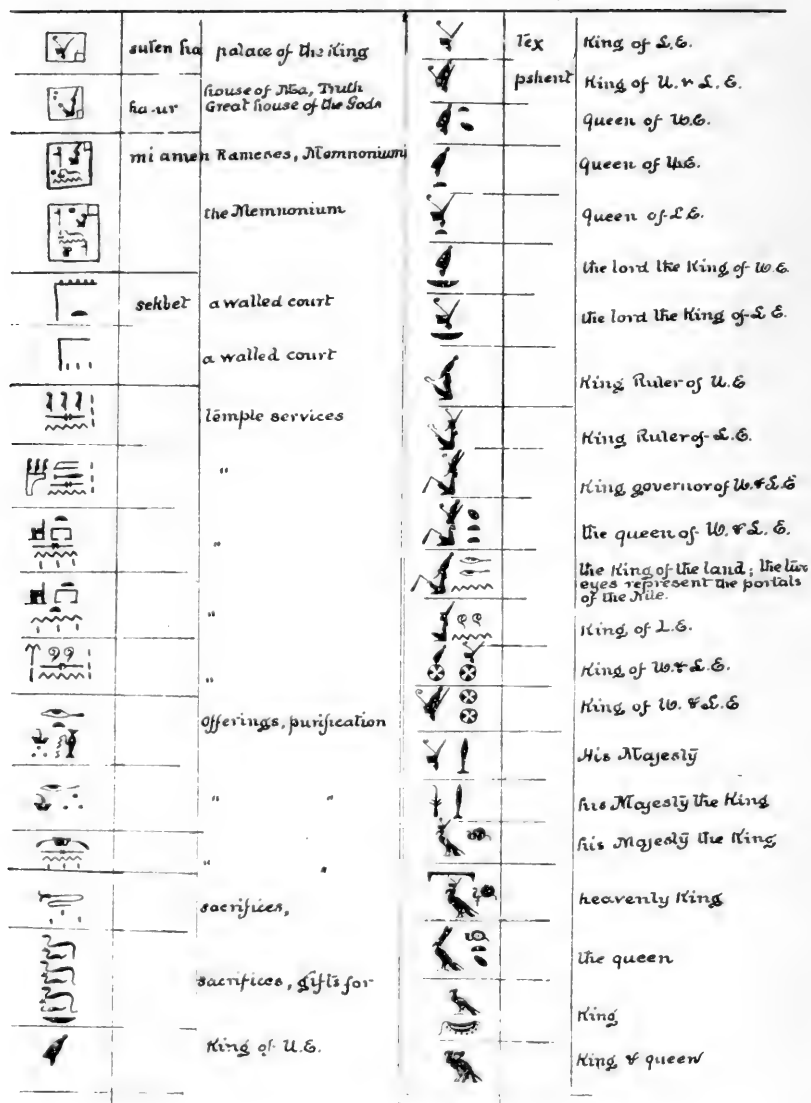 suten ha palace of the King
ha-ur house of Maa, Truth
Great house of the Gods
mi amen Rameses, Memnonium
the Memnonium
sekbet a walled court
a walled court
temple services
"
"
"
"
offerings, purification
" "
" "
sacrifices,
sacrifices, gifts for
King of U.E.
Tex King of L.E.
pshent King of U. & L. E.
Queen of U.E.
Queen of U.E.
Queen of L.E.
the lord the King of U.E.
the lord the King of L E.
King Ruler of U.E
King Ruler of L.E.
King governor of U. & L.E
the queen of U. & L. E.
the King of the land; the two
eyes represent the portals
of the Nile.
King of L.E.
King of U. & L.E.
King of U. & L.E
His Majesty
his Majesty the King
his Majesty the King
heavenly King
the queen
King
King & queen